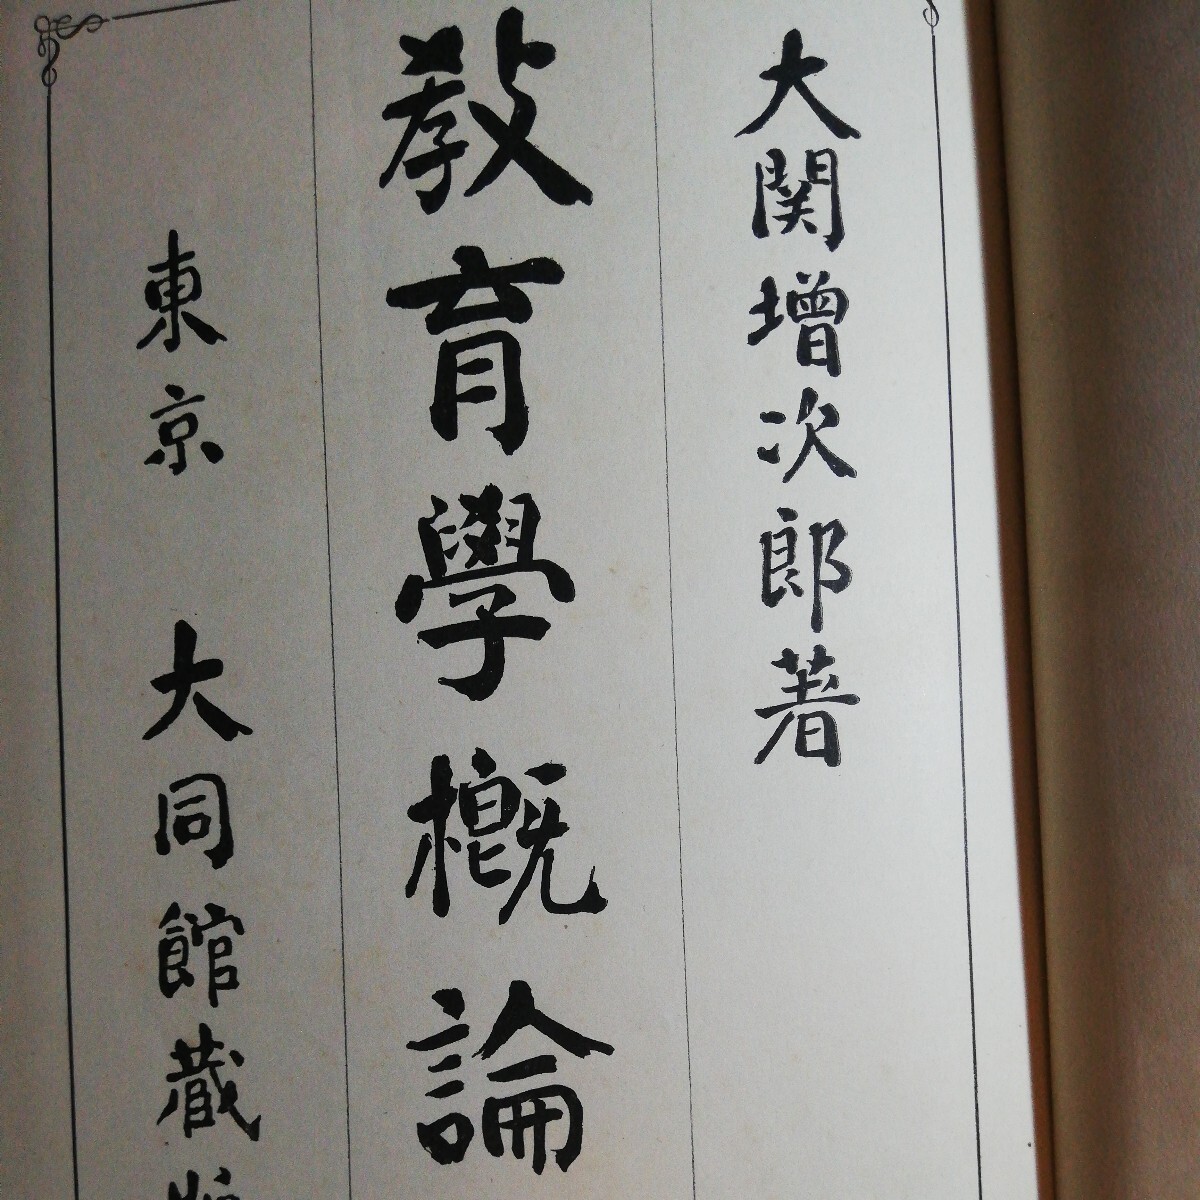 大関増次郎著
教育學概論
東京 大同館蔵